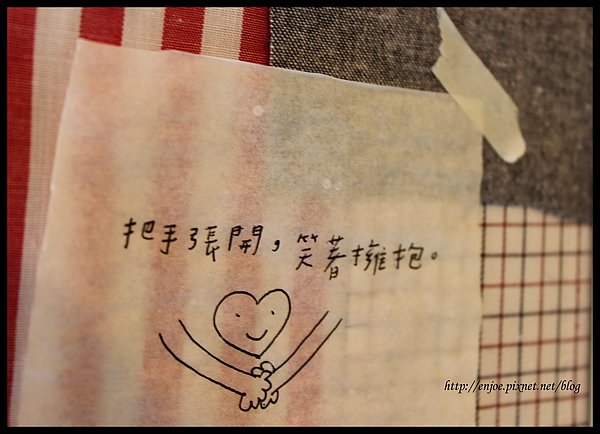 把手張開，笑著擁抱。
http://enjoe.pixnet.net/blog